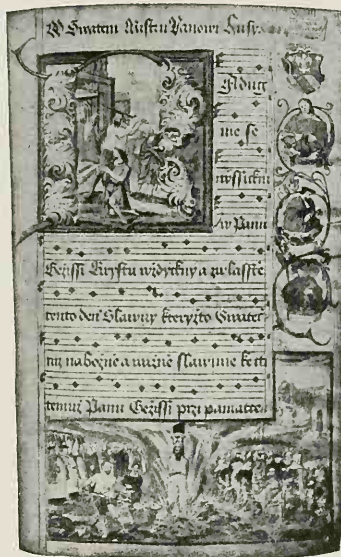 W Swatem Mistru Janowi Husy
Radug
me se
wssickni
w Panu
Gezissi Krystu wzdyckny a zwlasstie
tento den Slawny kteryzto Swater
tuz nabozne a wazne slawime ke cti
temuz Panu Gezissi przi pamatce